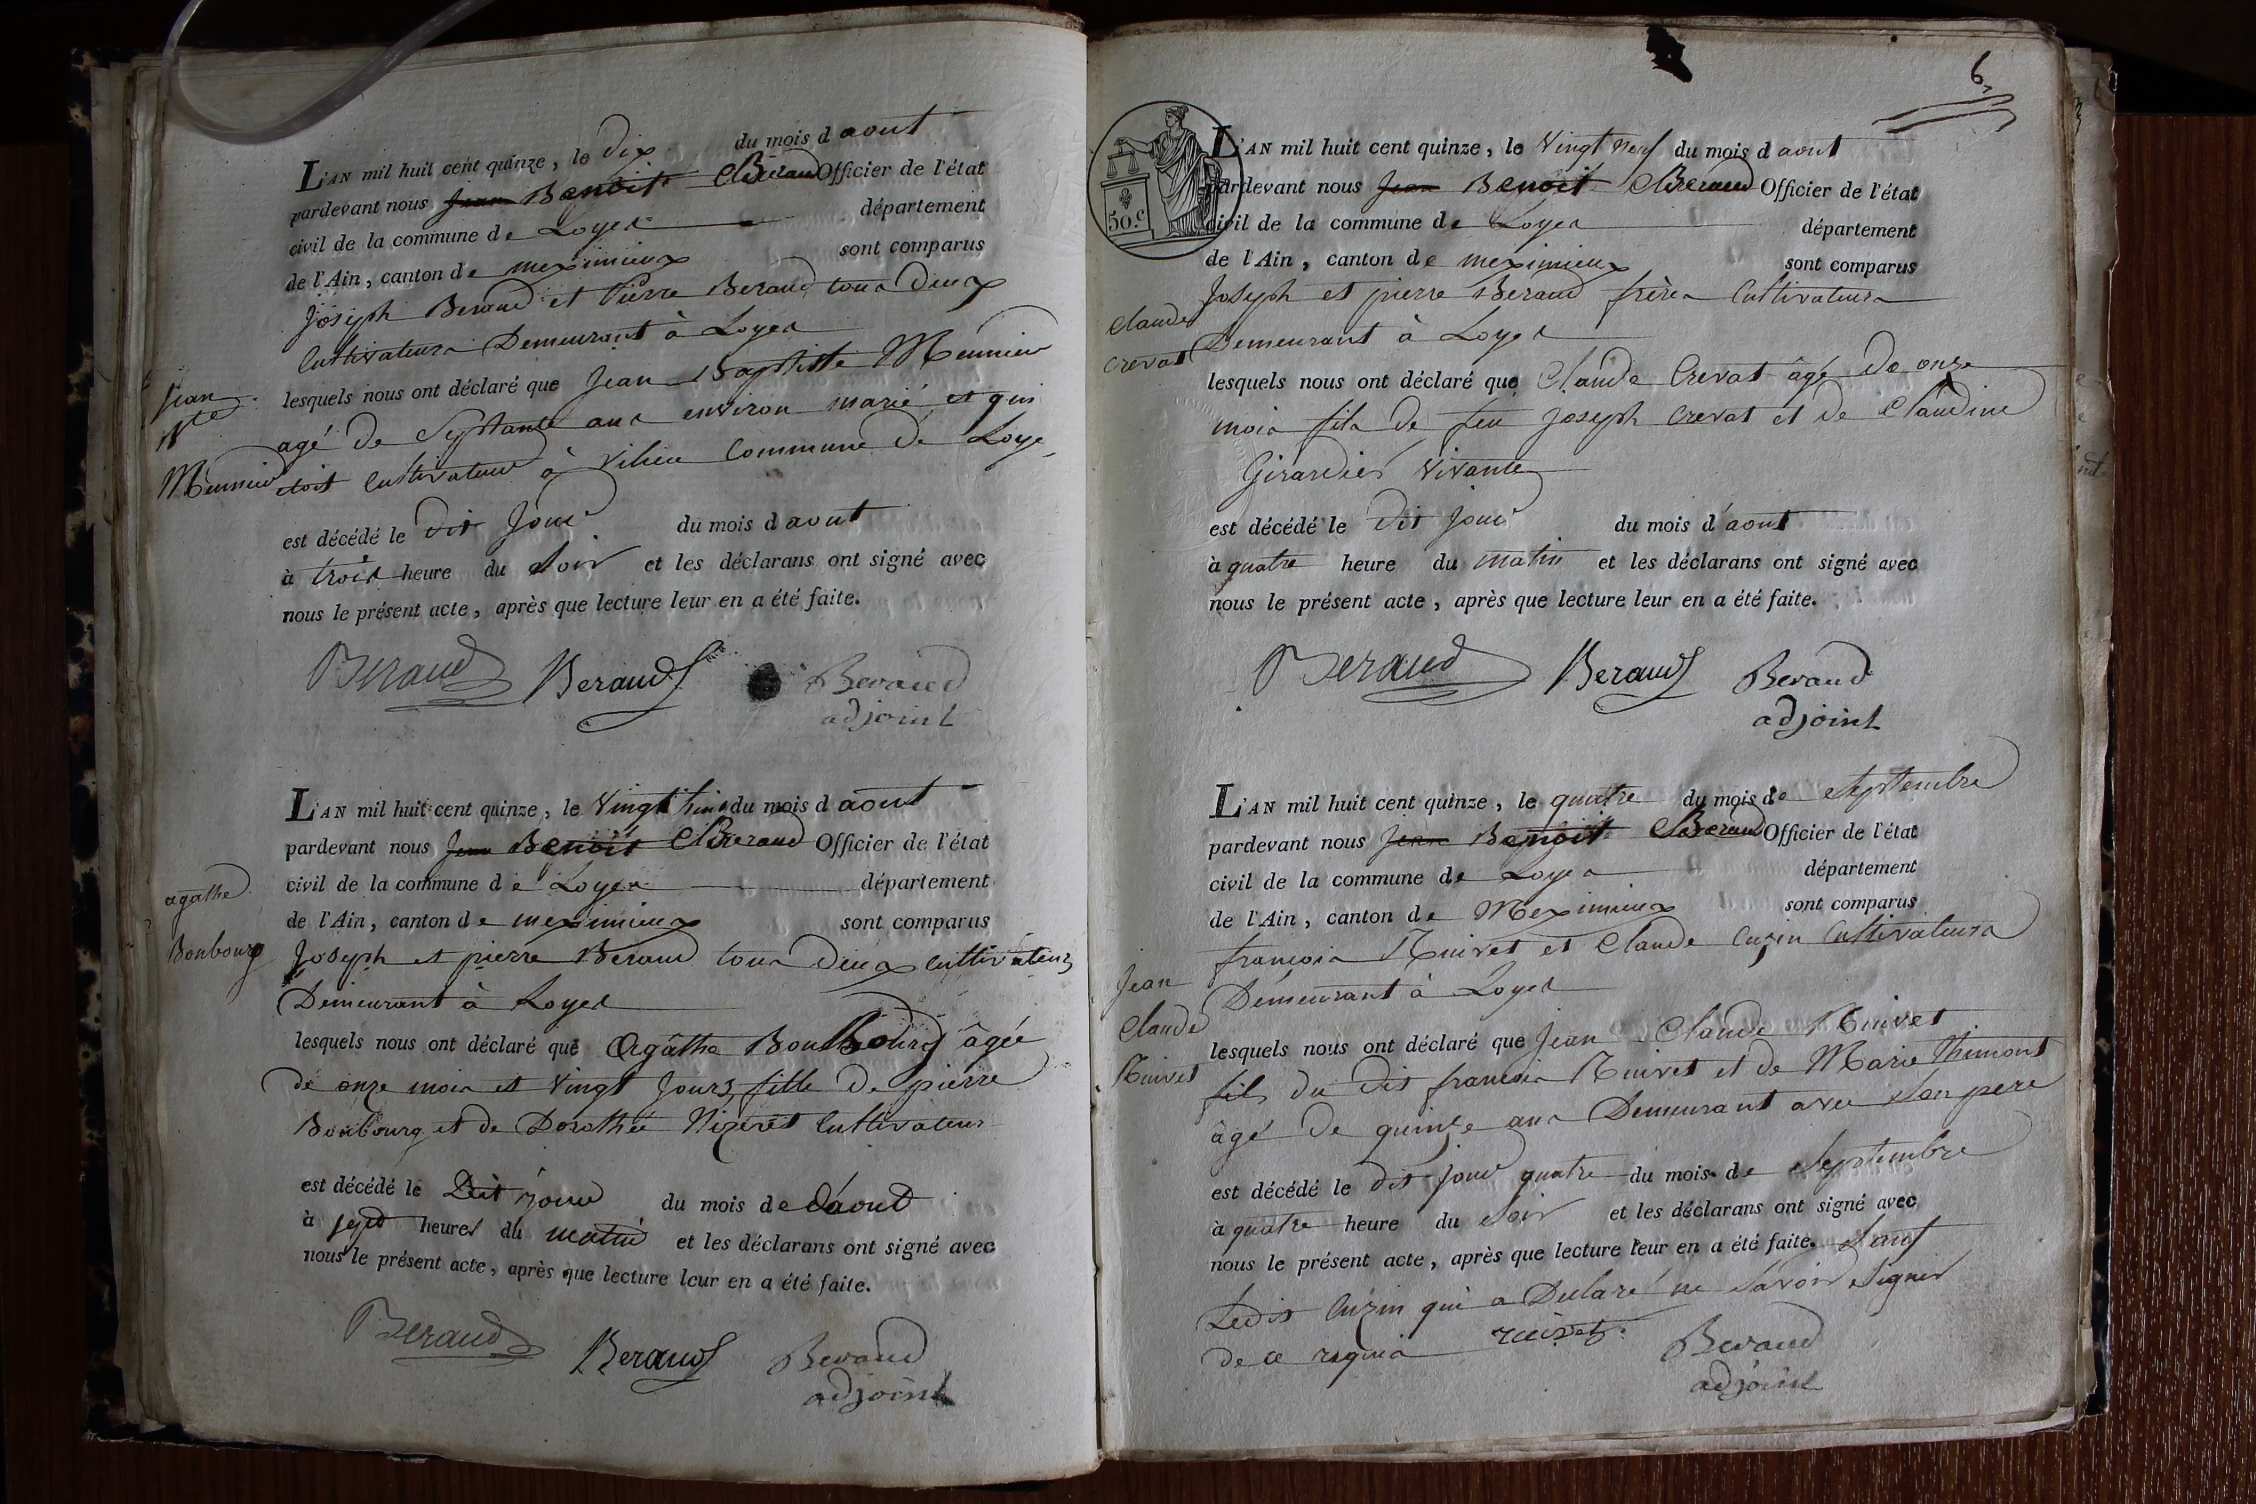 L'AN mil huit cent quinze, le dix du mois d aout
pardevant nous Jean Benoit Beraud Officier de l'état
civil de la commune de Loyes département
de l'Ain, canton de meximieux sont comparus
Joseph Beraud et Pierre Beraud tous deux
Cultivateurs Demeurant à Loyes
Jean
Bte
Meunier
lesquels nous ont déclaré que Jean Baptiste Meunier
agé de Septante ans environ marié et qui
etoit Cultivateur à Vilieu Commune de Loye
est décédé le dit Jour du mois d aout
à trois heure du Soir et les déclarans ont signé avec
nous le présent acte, après que lecture leur en a été faite.
Beraud Beraud Beraud
adjoint
L'AN mil huit cent quinze, le Vingt huit du mois d aout
pardevant nous Jean Benoit Beraud Officier de l'état
civil de la commune de Loyes département
de l'Ain, canton de meximieux sont comparus
agathe
Bonbourg
Joseph et pierre Beraud tous deux cultivateurs
Demeurant à Loyes
lesquels nous ont déclaré que Agâthe Bonbourg âgée
de onze mois et Vingt Jours fille de pierre
Bonbourg et de Dorothée Nizeret Cultivateur
est décédé le Dit jour du mois de d'aout
à sept heures du matin et les déclarans ont signé avec
nous le présent acte, après que lecture leur en a été faite.
Beraud Beraud Beraud
adjoint
6
50.c
L'AN mil huit cent quinze, le Vingt neuf du mois d aout
pardevant nous Jean Benoit Beraud Officier de l'état
civil de la commune de Loyes département
de l'Ain, canton de meximieux sont comparus
Joseph et pierre Beraud frères Cultivateurs
Demeurant à Loyes
Claude
Crevat
lesquels nous ont déclaré que Claude Crevat âgé de onze
mois fils de feu Joseph Crevat et de Claudine
Girardier Vivante
est décédé le dit Jour du mois d'aout
à quatre heure du matin et les déclarans ont signé avec
nous le présent acte, après que lecture leur en a été faite.
Beraud Beraud Beraud
adjoint
L'AN mil huit cent quinze, le quatre du mois de Septembre
pardevant nous Jean Benoit Beraud Officier de l'état
civil de la commune de Loyes département
de l'Ain, canton de Meximieux sont comparus
françois Ruivet et Claude Cuzin Cultivateurs
Demeurant à Loyes
Jean
Claude
Ruivet
lesquels nous ont déclaré que Jean Claude Ruivet
fils du dit françois Ruivet et de Marie Thimont
âgé de quinze ans Demeurant avec Son pere
est décédé le dit jour quatre du mois de Septembre
à quatre heure du Soir et les déclarans ont signé avec
nous le présent acte, après que lecture leur en a été faite. Sauf
Ledit Cuzin qui a Declaré ne Savoir Signer
de ce requis ruivet Beraud
adjoint